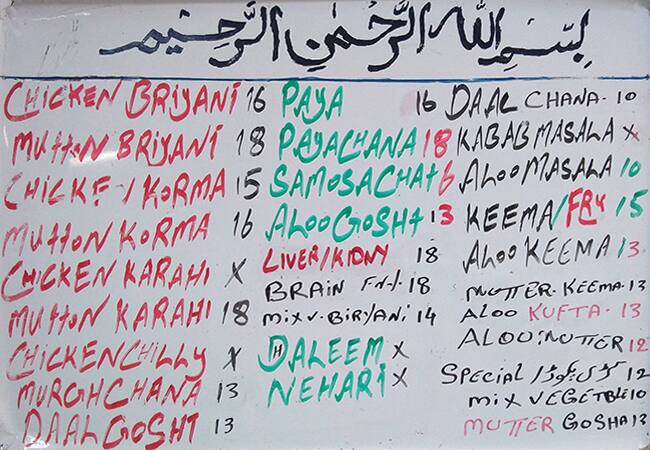 بِسْمِ اللهِ الرَّحْمٰنِ الرَّحِيْمِ
CHICKEN BRIYANI 16
MUTTON BRIYANI 18
CHICKEN KORMA 15
MUTTON KORMA 16
CHICKEN KARAHI X
MUTTON KARAHI 18
CHICKEN CHILLY X
MURGH CHANA 13
DAAL GOSHT 13
PAYA 16
PAYACHANA 18
SAMOSA CHAT 6
ALOO GOSHT 13
LIVER/KIDNY 18
BRAIN FRY. 18
MIX V. BIRYANI 14
DALEEM X
NEHARI X
DAAL CHANA. 10
KABAB MASALA X
ALOO MASALA 10
KEEMA/FRY 15
ALOO KEEMA 13
MUTTER. KEEMA. 13
ALOO KUFTA. 13
ALOO. MUTTER 12
SPECIAL / کڑی پکوڑا 12
MIX VEGETBLE 10
MUTTER GOSHA 13